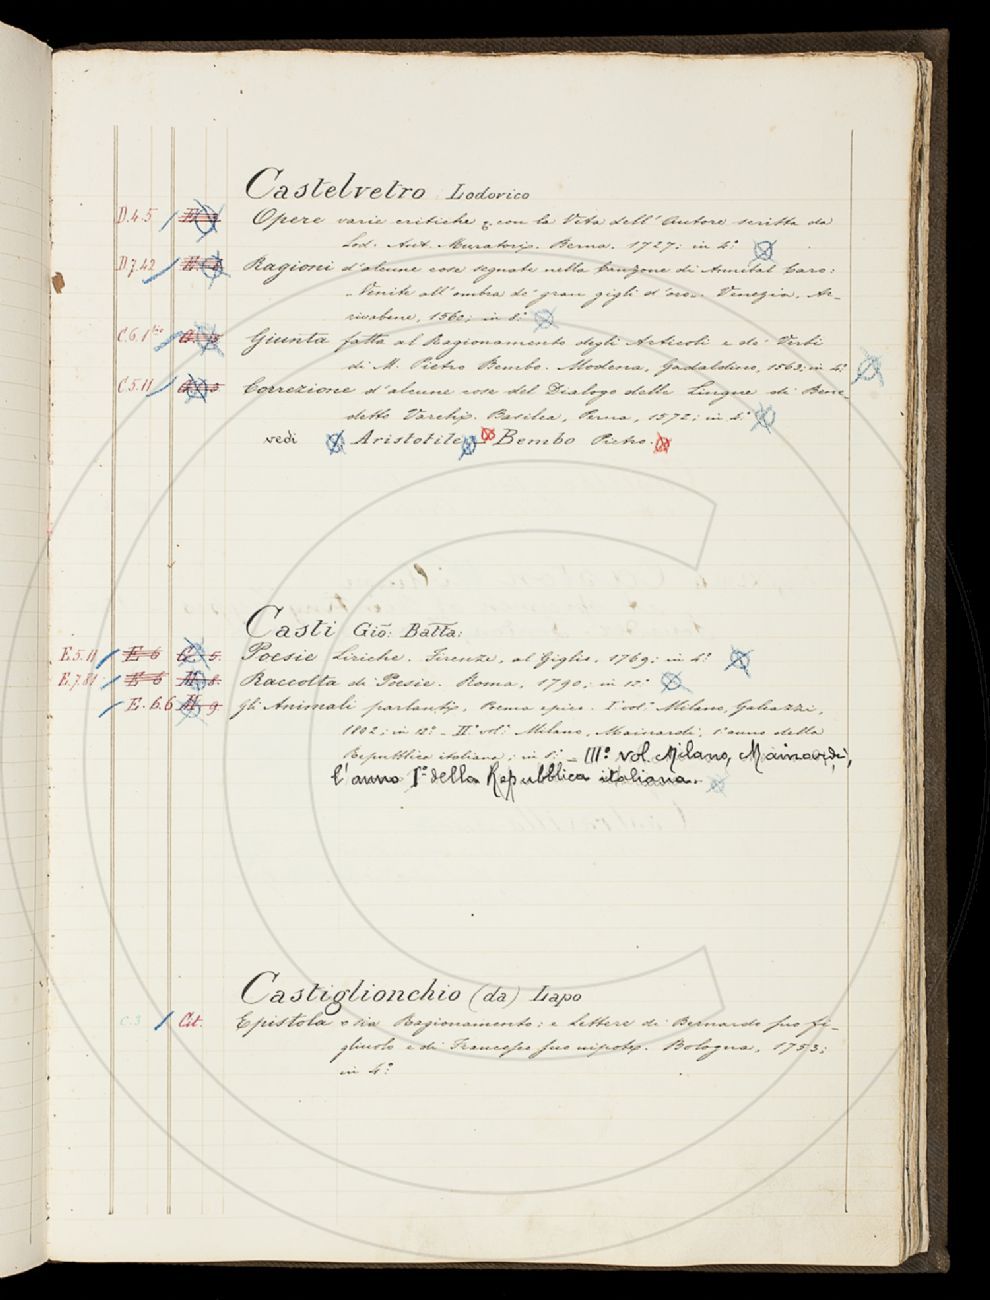 Castelvetro Lodovico
D.4.5 Opere varie critiche, con la Vita dell'Autore scritta da
Lod. Ant. Muratori. Berna. 1727; in 4.º
D.7.42 Ragioni d'alcune cose segnate nella Canzone di Annibal Caro:
Venite all'ombra de' gran gigli d'oro. Venezia, Ar-
rivabene, 1560; in 8.º
C.6.1 bis Giunta fatta al Ragionamento degli Articoli e de' Verbi
di M. Pietro Bembo. Modena, Gadaldino, 1563; in 4.º
C.5.11 Correzione d'alcune cose del Dialogo delle Lingue di Bene-
detto Varchi. Basilea, Perna, 1572; in 4.º
vedi Aristotile – Bembo Pietro.
Casti Gio: Batta:
E.5.11 E 6 G. 5. Poesie Liriche. Firenze, al Giglio, 1769; in 4.º
E.7.81 E 6 H. 8. Raccolta di Poesie. Roma, 1790; in 12.º
E. 6.6 H. 9 gli Animali parlanti, Poema epico. I.º vol. Milano, Galeazzi,
1802; in 12.º – II.º vol. Milano, Mainardi, l'anno della
Repubblica italiana; in 8.º – III.º vol. Milano, Mainardi,
l'anno I.º della Repubblica italiana.
Castiglionchio (da) Lapo
C.3 Cit. Epistola o sia Ragionamento; e Lettere di Bernardo suo fi-
gliuolo e di Francesco suo nipote. Bologna, 1753;
in 4.º